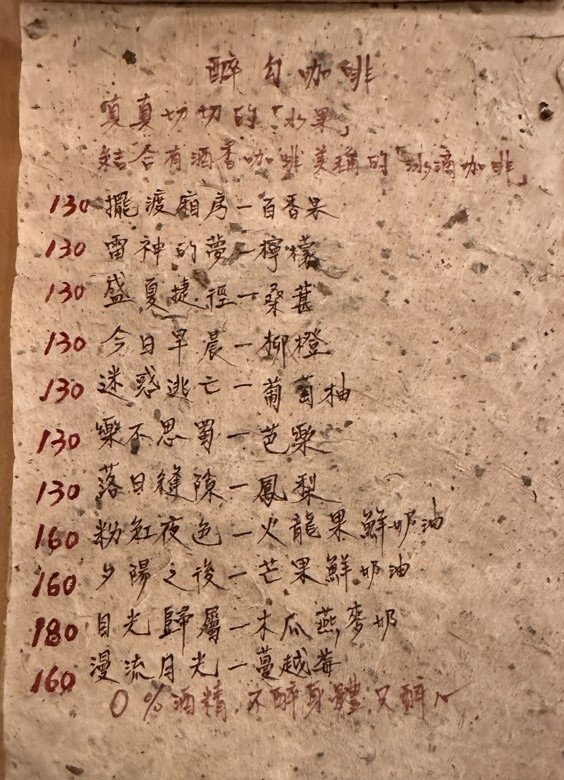 醉勾咖啡
真真切切的「水果」
結合有酒香咖啡美稱的「冰滴咖啡」
130 擺渡廂房－百香果
130 雷神的夢－檸檬
130 盛夏捷徑－桑葚
130 今日早晨－柳橙
130 迷惑逃亡－葡萄柚
130 樂不思蜀－芭樂
130 落日縫隙－鳳梨
160 粉紅夜色－火龍果鮮奶油
160 夕陽之後－芒果鮮奶油
180 目光歸屬－木瓜燕麥奶
160 漫流月光－蔓越莓
0%酒精,不醉身體,只醉心